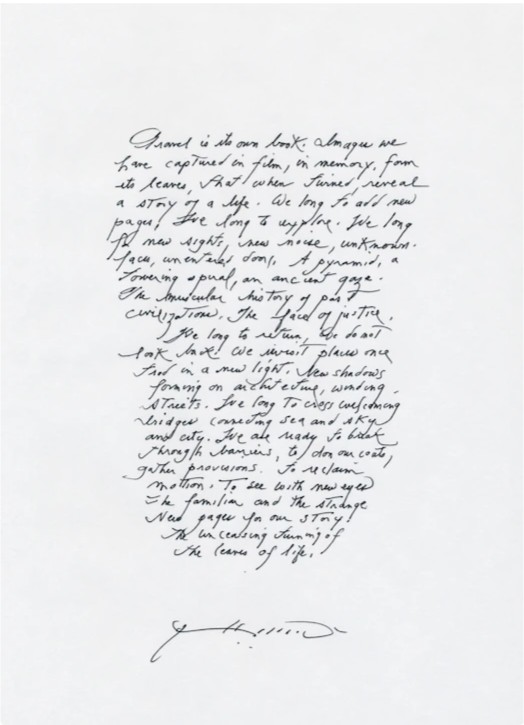 Travel is its own book. Images we
have captured in film, in memory, form
its leaves, that when turned, reveal
a story of a life. We long to add new
pages, We long to explore. We long
for new sights, new noise, unknown
faces, unentered doors. A pyramid, a
towering spiral, an ancient gaze.
The muscular history of past
civilizations. The faces of justice.
We long to return, we do not
look back. We revisit places once
trod in a new light. New shadows
forming on architecture, winding
streets. We long to cross welcoming
bridges connecting sea and sky
and city. We are ready to break
through barriers, to don our coats,
gather provisions. To reclaim
motion. To see with new eyes
the familiar and the strange
New pages for our story!
The unceasing turning of
the leaves of life.